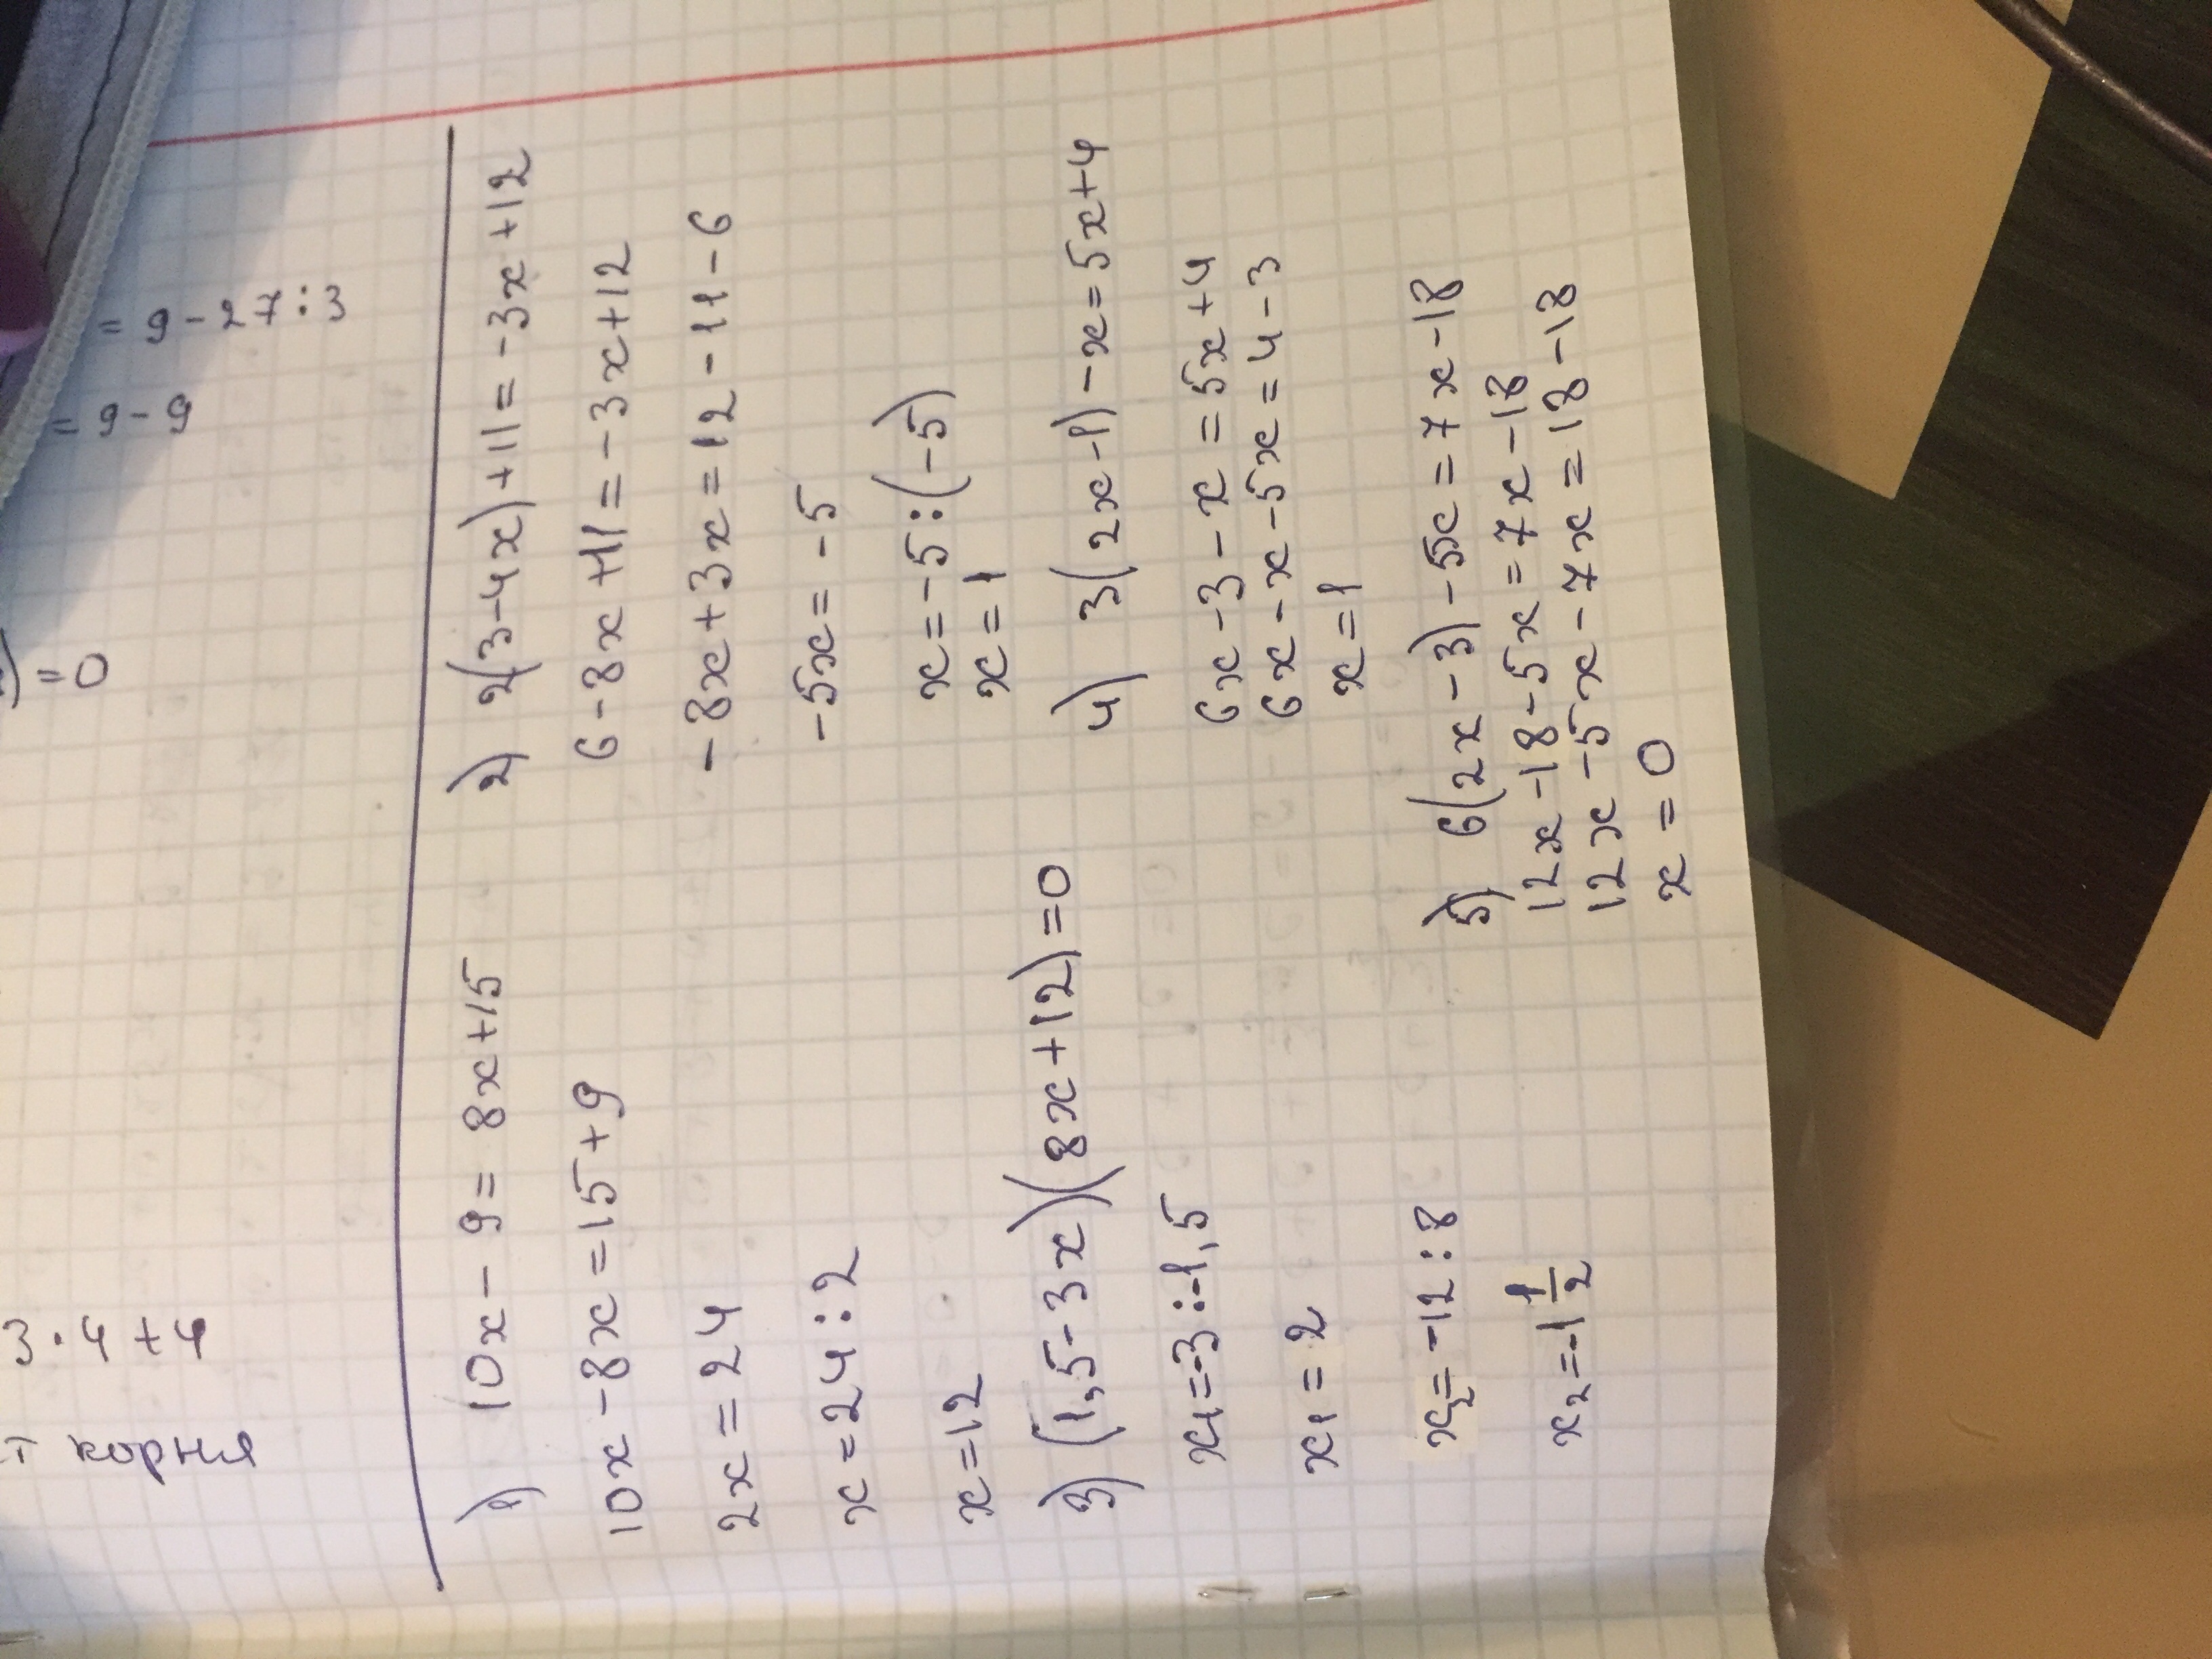 3·4+4
= 9-27:3
= 9-9
=0
корня
1) 10x-9=8x+15
10x-8x=15+9
2x=24
x=24:2
x=12
2) 2(3-4x)+11=-3x+12
6-8x+11=-3x+12
-8x+3x=12-11-6
-5x=-5
x=-5:(-5)
x=1
3) (1,5-3x)(8x+12)=0
x₁=-3:-1,5
x₁=2
x₂=-12:8
x₂=-1 1/2
4) 3(2x-1)-x=5x+4
6x-3-x=5x+4
6x-x-5x=4-3
x=1
5) 6(2x-3)-5x=7x-18
12x-18-5x=7x-18
12x-5x-7x=18-18
x=0